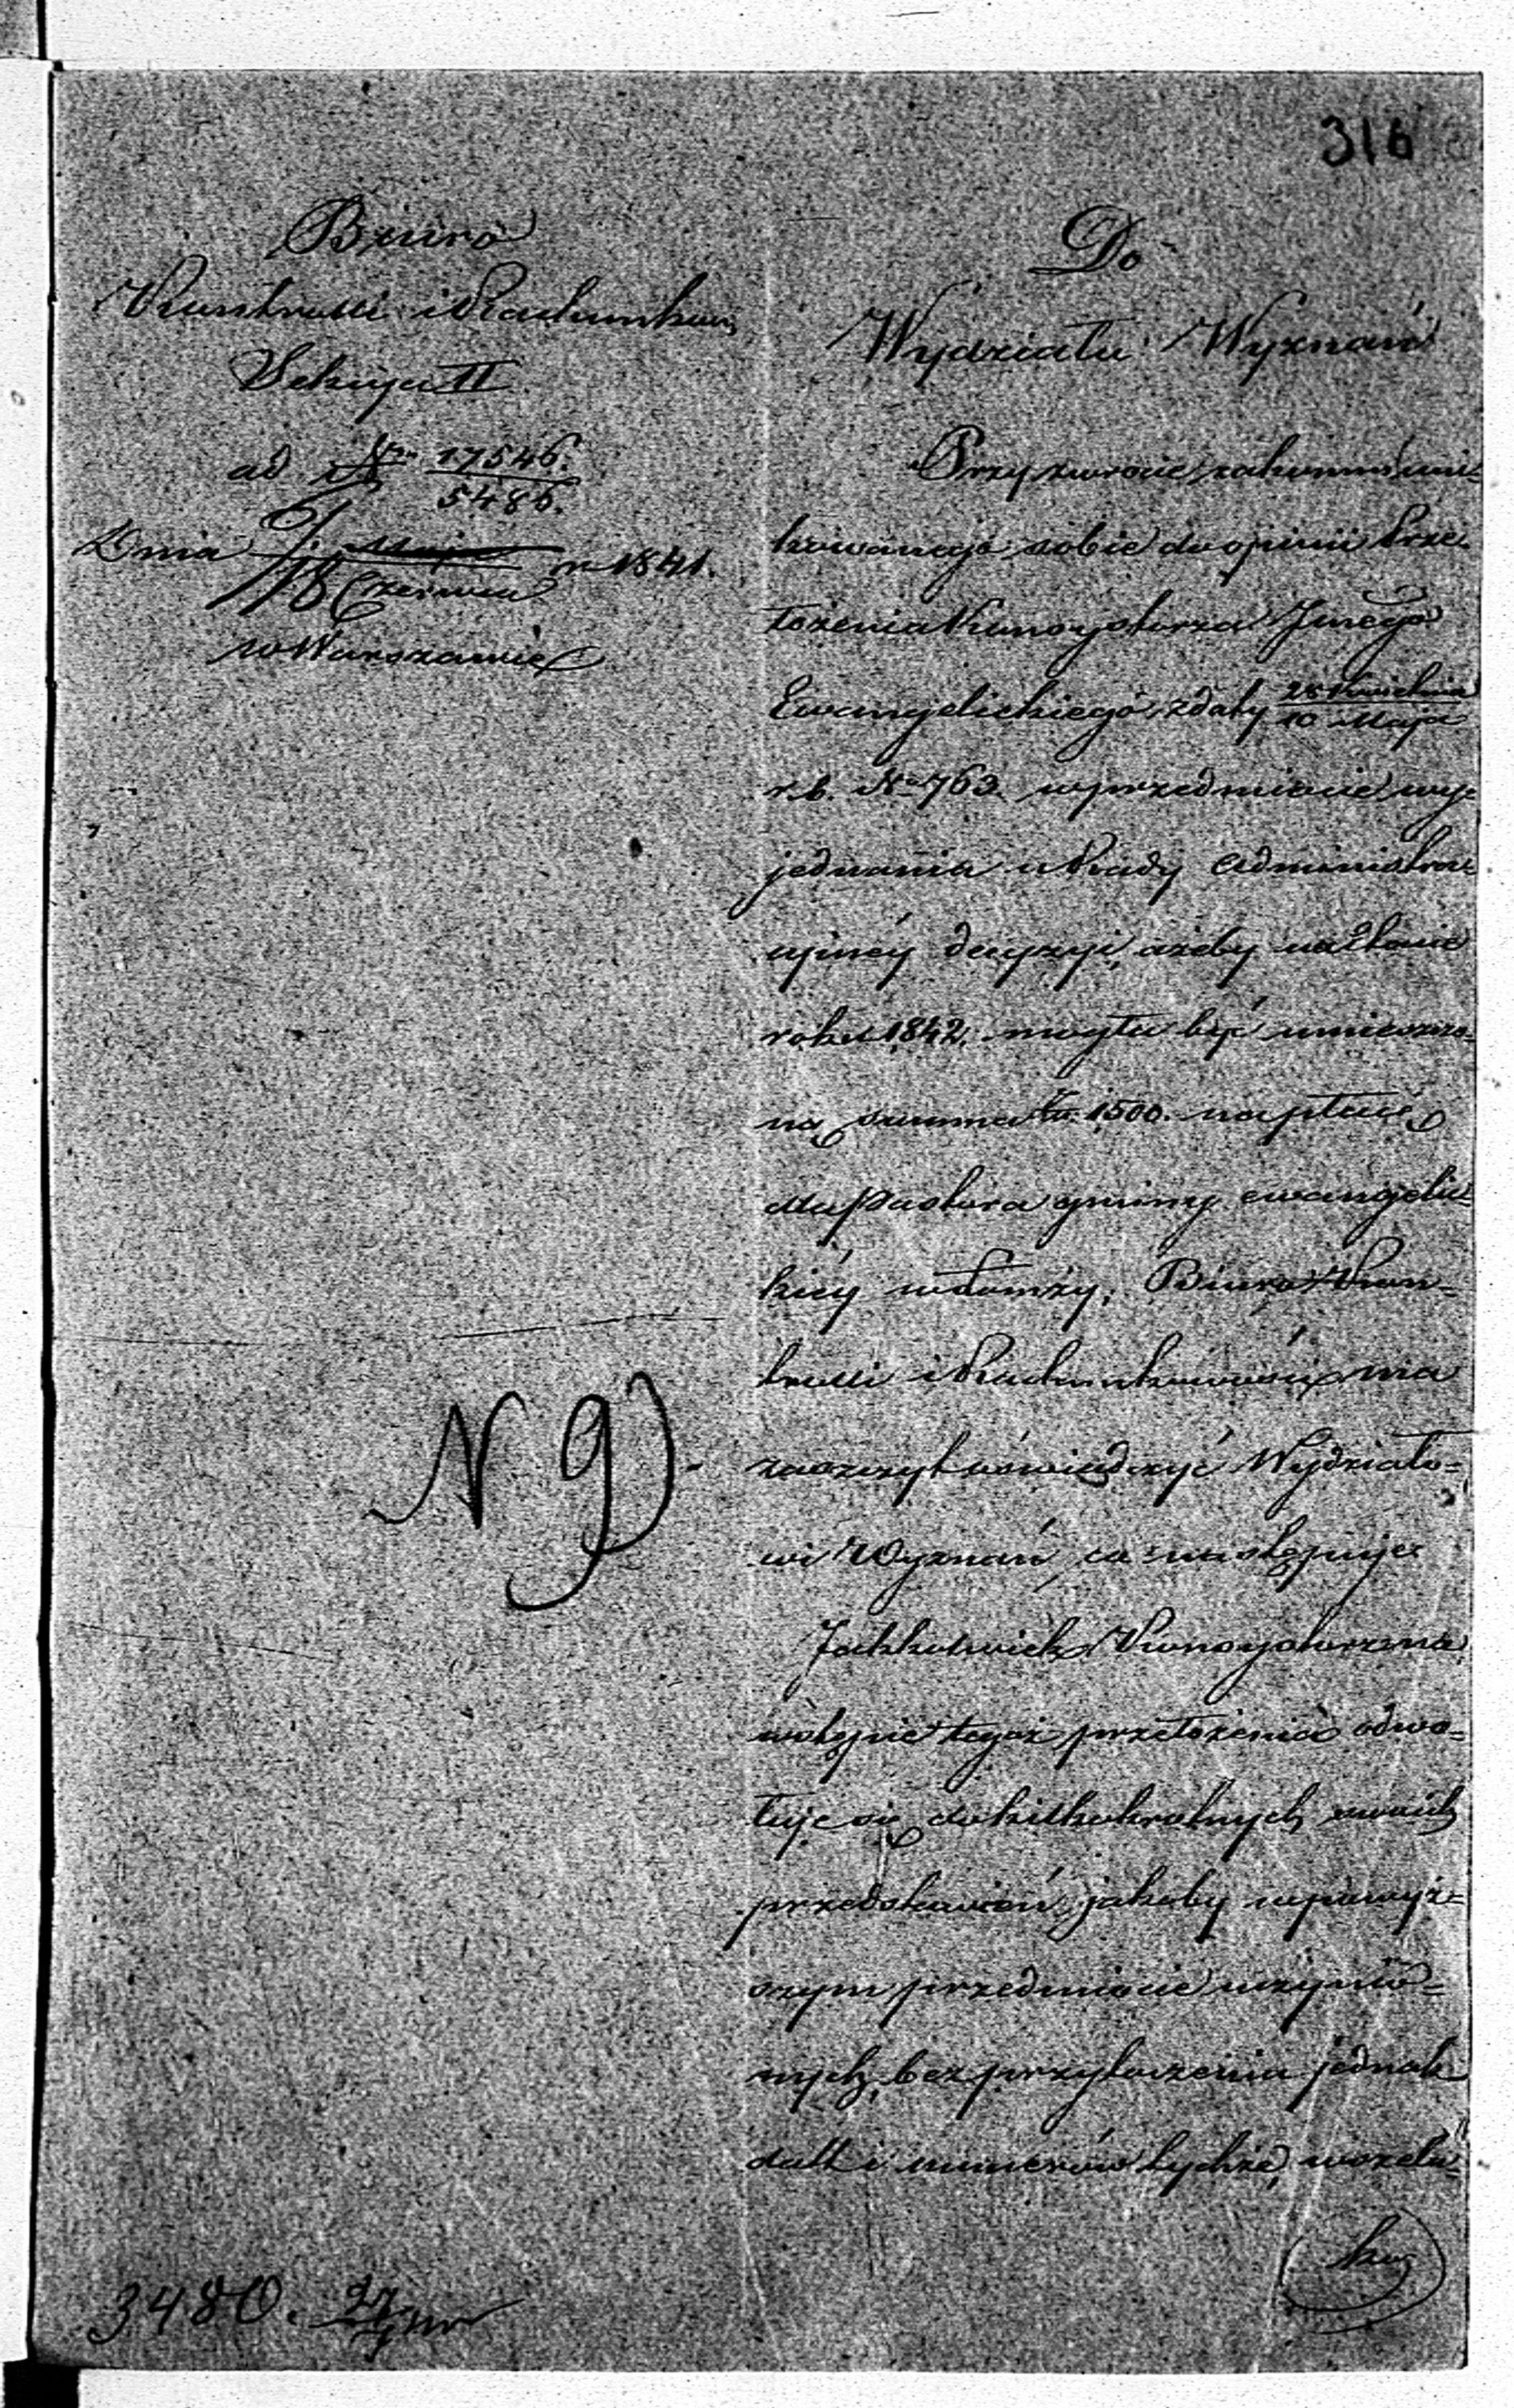 316
Biuro
Kontrolli i Rachunkow:
Sekcya II
ad Nra 17546.
5485.
Dnia 6/18 Maja Czerwca r. 1841.
w Warszawie
Do
Wydziału Wyznań
Przy zwrocie zakommuni=
kowanego sobie do opinii Prze=
łożenia Konsystorza Jnego
Ewangelickiego z daty 28 Kwietnia
10 Maja
r. b. No 763. w przedmiocie wy=
jednania u Rady Administra=
cyjnéy decyzyi, ażeby na Etacie
roku 1842. mogła być umieszczo=
ną summa 1500. na płacę
dla Pastora gminy ewangelic=
kiéy w Łomży, Biuro Kon=
trolli i Rachunkowości ma
zaszczyt oświadczyć Wydziało=
wi Wyznań, co następuje:
Jakkolwiek Konsystorz na
wstępie tegoż przełożenia odwo=
łuje się do kilkakrotnych swoich
przedstawień, jakoby w powyż=
szym przedmiocie uczynio=
nych, bez przytoczenia jednak
datt i numerów tychże, wszela=
ko
N 9).
3480. 27